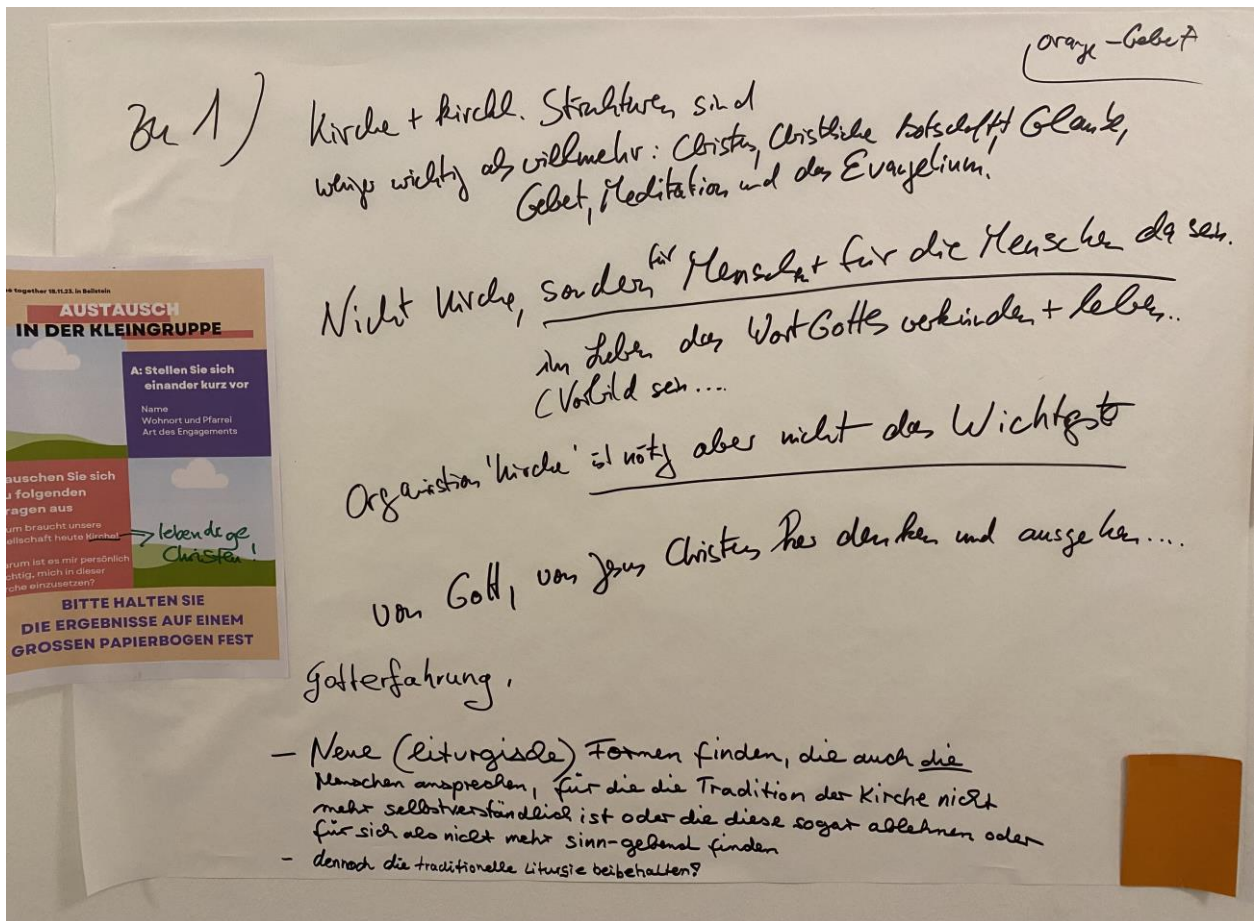 orange - Gebet
Zu 1)
Kirche + kirchl. Strukturen sind
weniger wichtig als vielmehr: Christus, Christliche Botschaft, Glaube,
Gebet, Meditation und das Evangelium.
Nicht Kirche, sondern für Menschen + für die Menschen da sein.
im Leben das Wort Gottes verkünden + leben..
(Vorbild sein....
Organisation 'Kirche' ist nötig aber nicht das Wichtigste
von Gott, von Jesus Christus her denken und ausgehen....
Gotterfahrung.
- Neue (liturgische) Formen finden, die auch die
Menschen ansprechen, für die die Tradition der Kirche nicht
mehr selbstverständlich ist oder die diese sogar ablehnen oder
für sich als nicht mehr sinn-gebend finden
- dennoch die traditionelle Liturgie beibehalten?
together 18.11.23. in Beilstein
AUSTAUSCH
IN DER KLEINGRUPPE
A: Stellen Sie sich
einander kurz vor
Name
Wohnort und Pfarrei
Art des Engagements
auschen Sie sich
folgenden
ragen aus
um braucht unsere
ellschaft heute Kirche?
→ lebendige
Christen!
rum ist es mir persönlich
chtig, mich in dieser
che einzusetzen?
BITTE HALTEN SIE
DIE ERGEBNISSE AUF EINEM
GROSSEN PAPIERBOGEN FEST